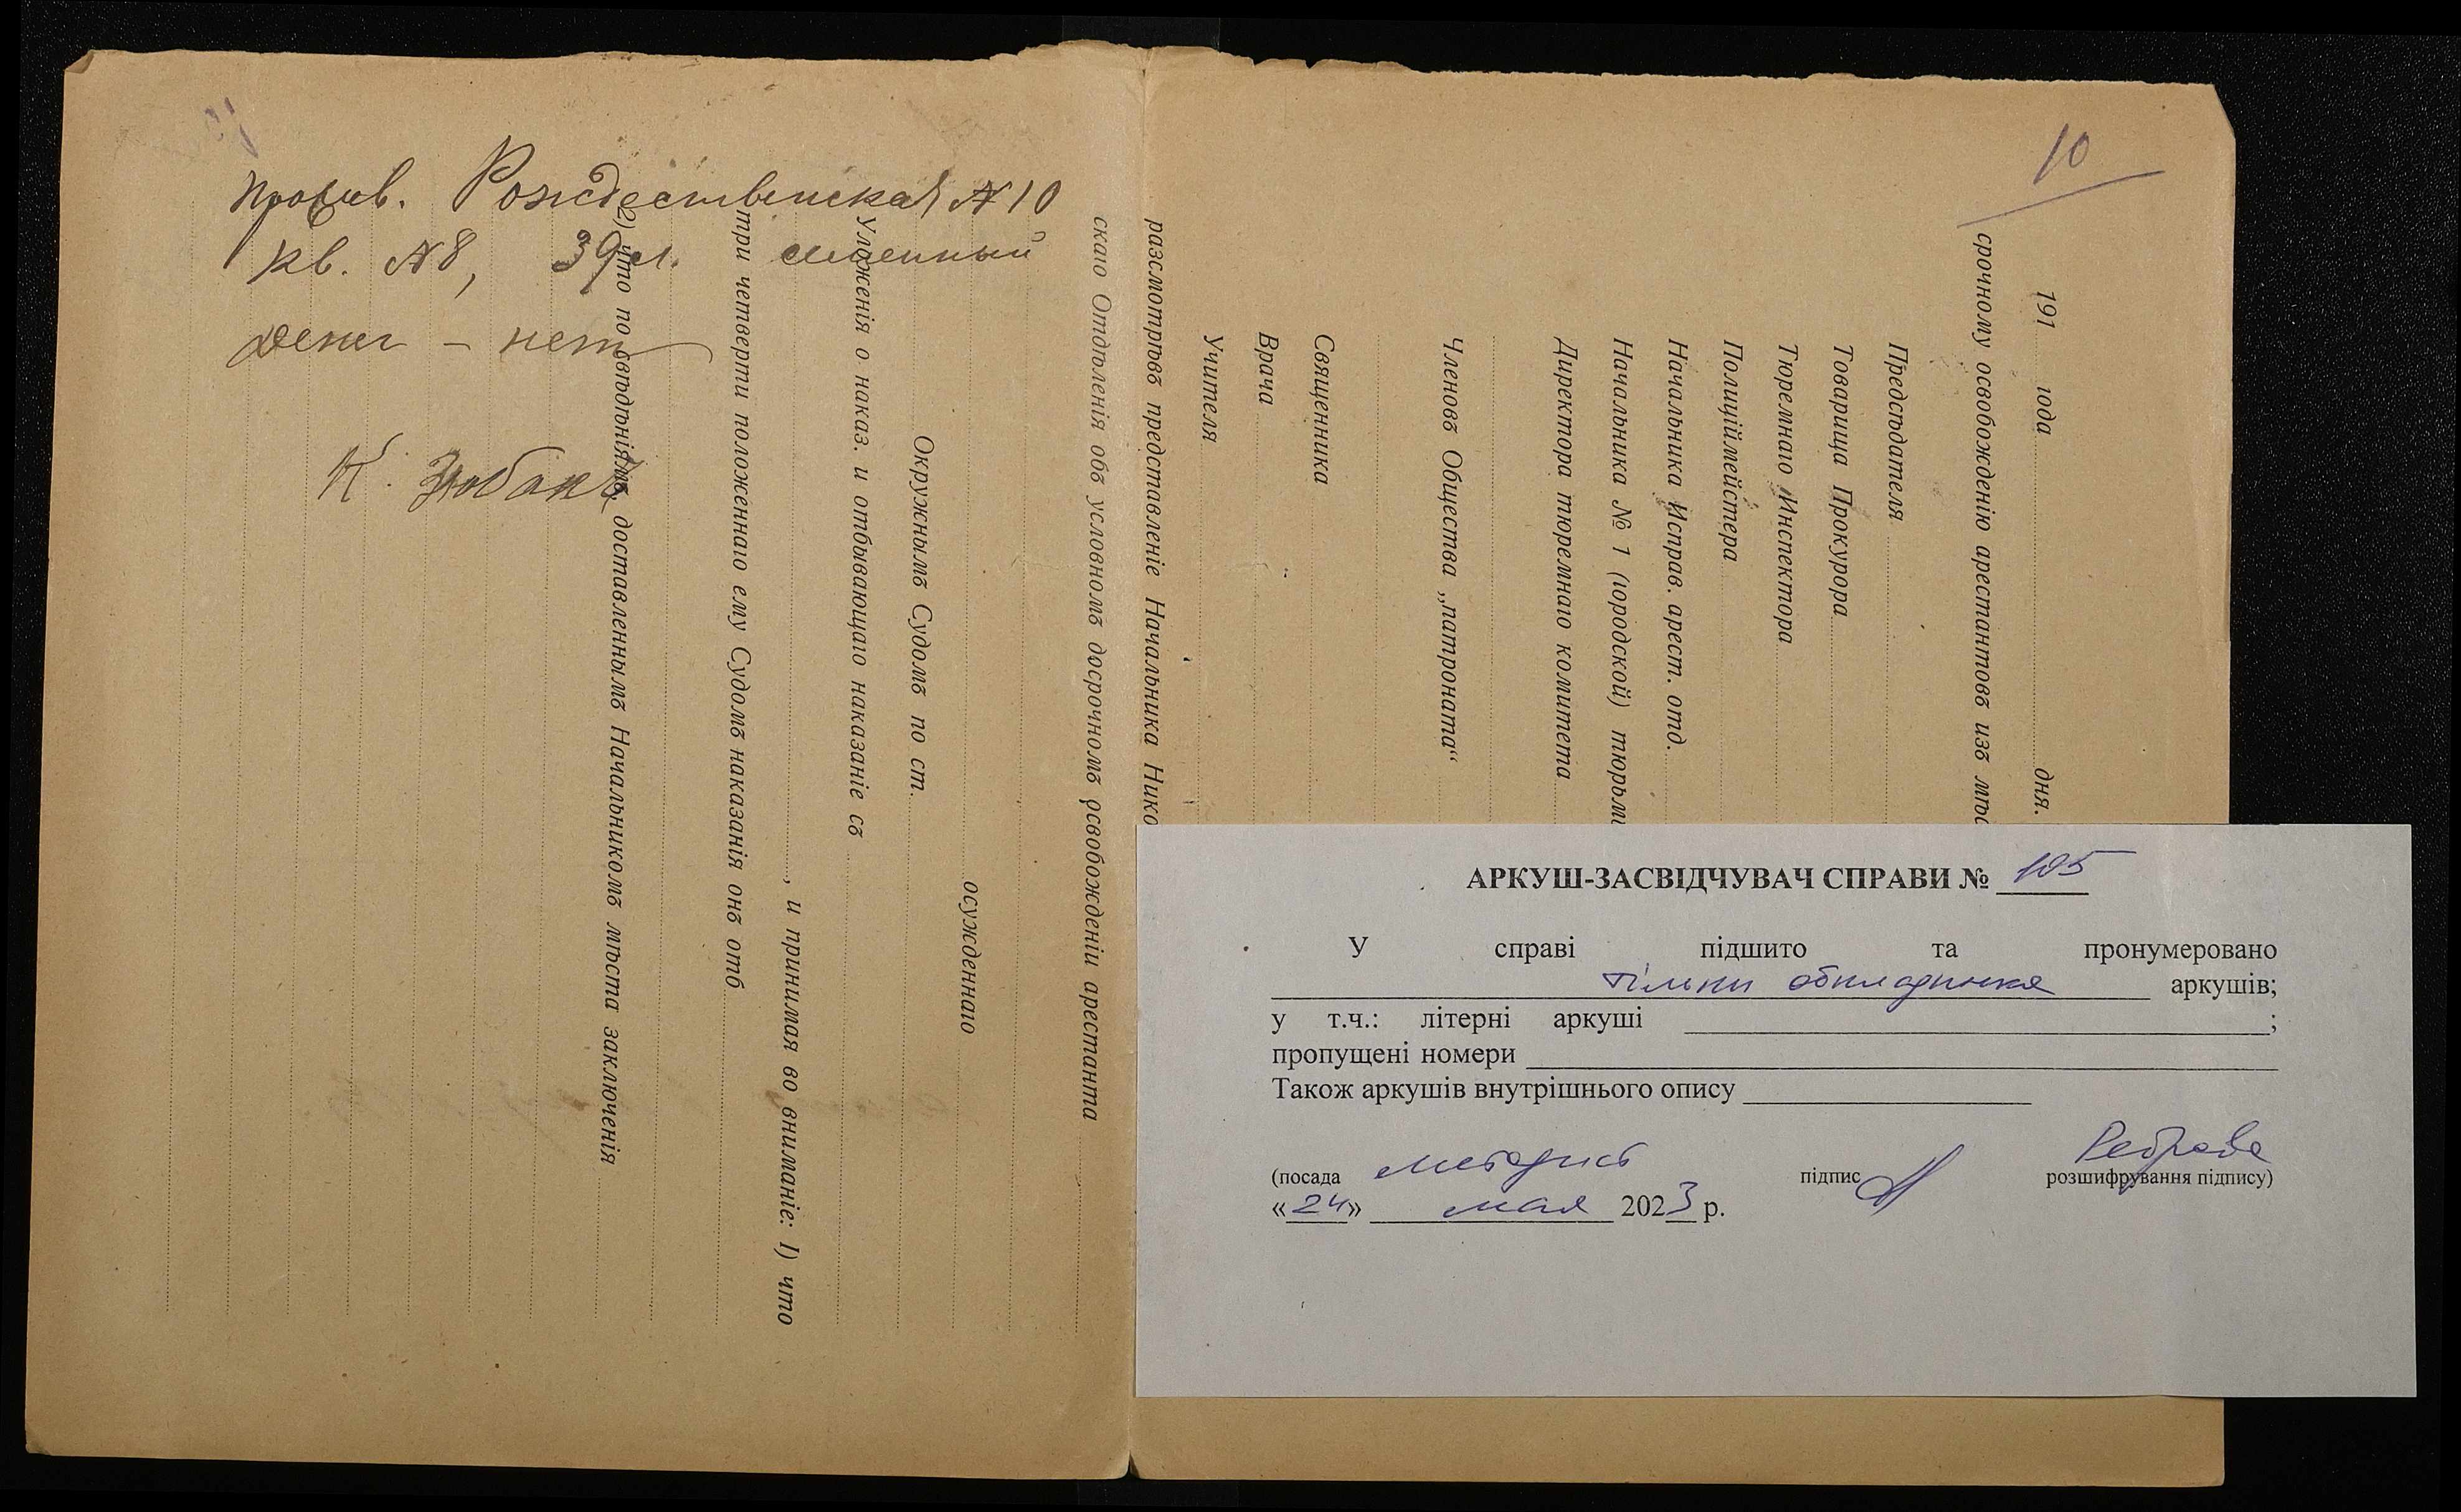 10
191 года дня.
срочному освобожденію арестантовъ изъ мѣс
Предсѣдателя
Товарища Прокурора
Тюремнаго Инспектора
Полиціймейстера
Начальника Исправ. арест. отд.
Начальника № 1 (городской) тюрьм
Директора тюремнаго комитета
Членовъ Общества „патроната“
Священника
Врача
Учителя
разсмотрѣвъ представленіе Начальника Нико
скаго Отдѣленія объ условномъ досрочномъ освобожденіи арестанта
осужденнаго
Окружнымъ Судомъ по ст.
Уложенія о наказ. и отбывающаго наказаніе съ
, и принимая во вниманіе: 1) что
три четверти положеннаго ему Судомъ наказанія онъ отб
2) что по свѣдѣніямъ, доставленнымъ Начальникомъ мѣста заключенія
Рождественская № 10
кв. № 8, 39 л.
денег - нет
К. Зюбан
АРКУШ-ЗАСВІДЧУВАЧ СПРАВИ № 105
У справі підшито та пронумеровано
тільки обкладинка аркушів;
у т.ч.: літерні аркуші ;
пропущені номери
Також аркушів внутрішнього опису
(посада методист підпис Реброва розшифрування підпису)
«24» мая 2023 р.